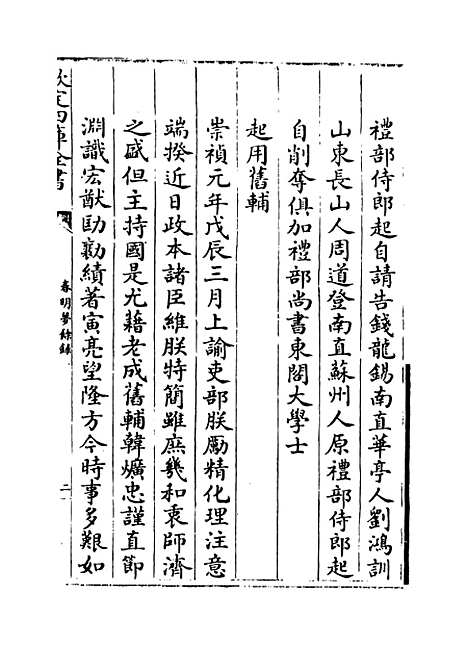 禮部侍郎起自請告錢龍錫南直華亭人劉鴻訓
山東長山人周道登南直蘇州人原禮部侍郎起
自削奪俱加禮部尚書東閣大學士
起用舊輔
崇禎元年戊辰三月上諭吏部朕勵精化理注意
端揆近日政本諸臣維朕特簡雖庶幾和衷師濟
之盛但主持國是尤藉老成舊輔韓爌忠謹直節
淵識宏猷劻勷績著寅亮望隆方今時事多艱如
欽定四庫全書
春明夢餘錄